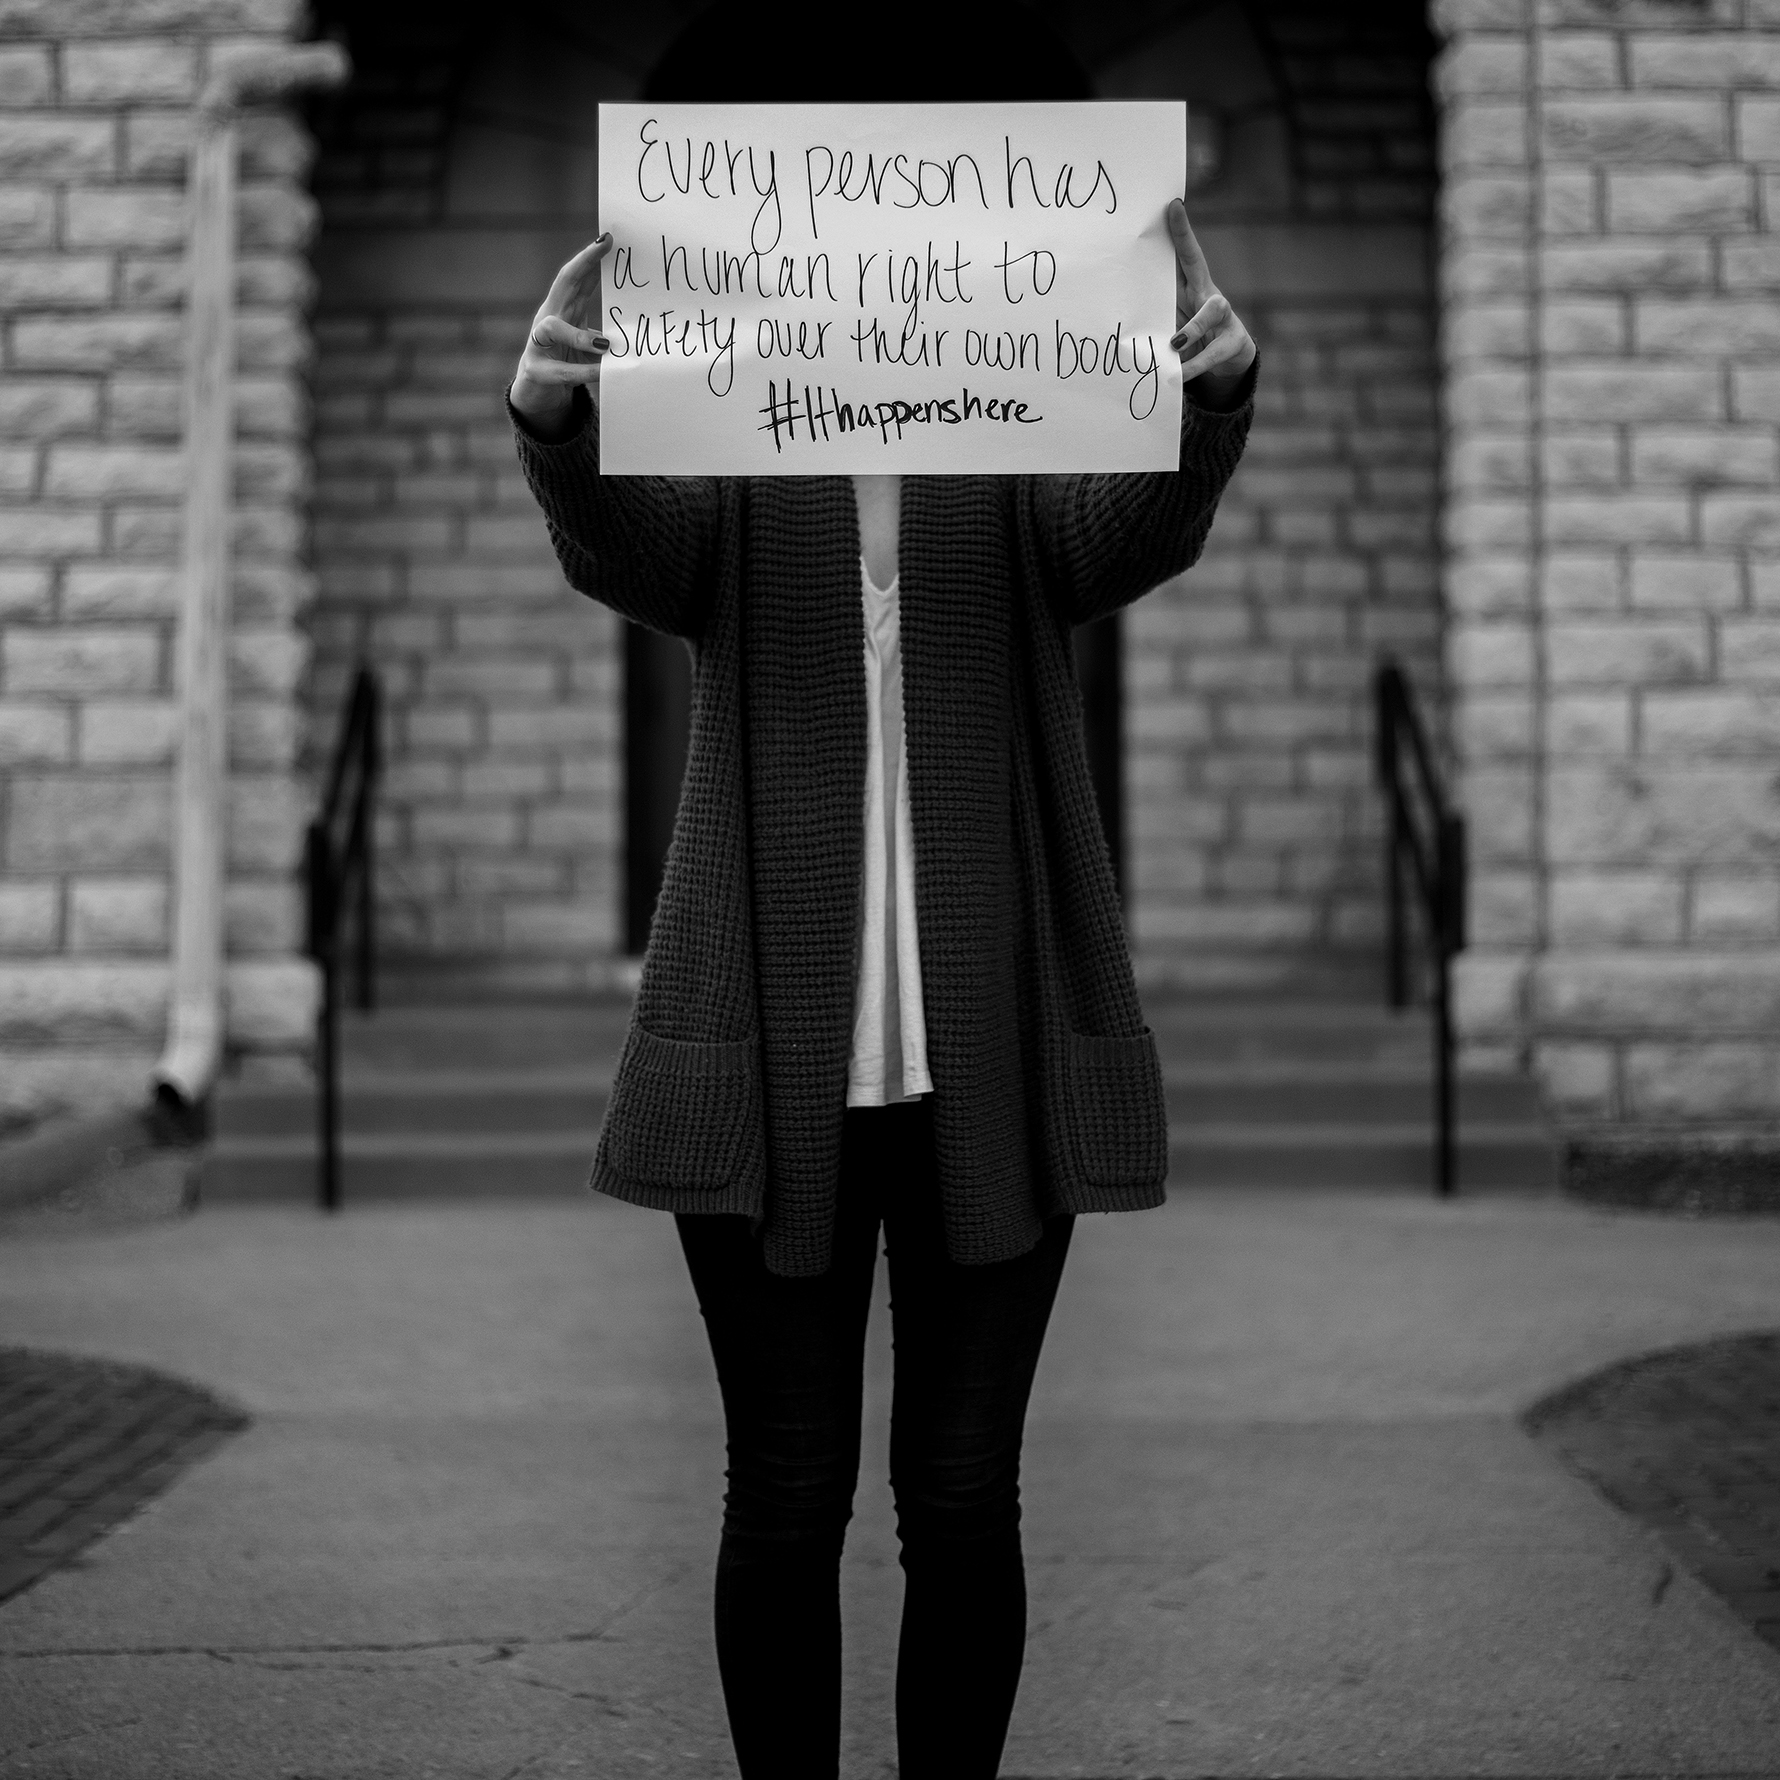 Every person has
a human right to
Safety over their own body
#Ithappenshere